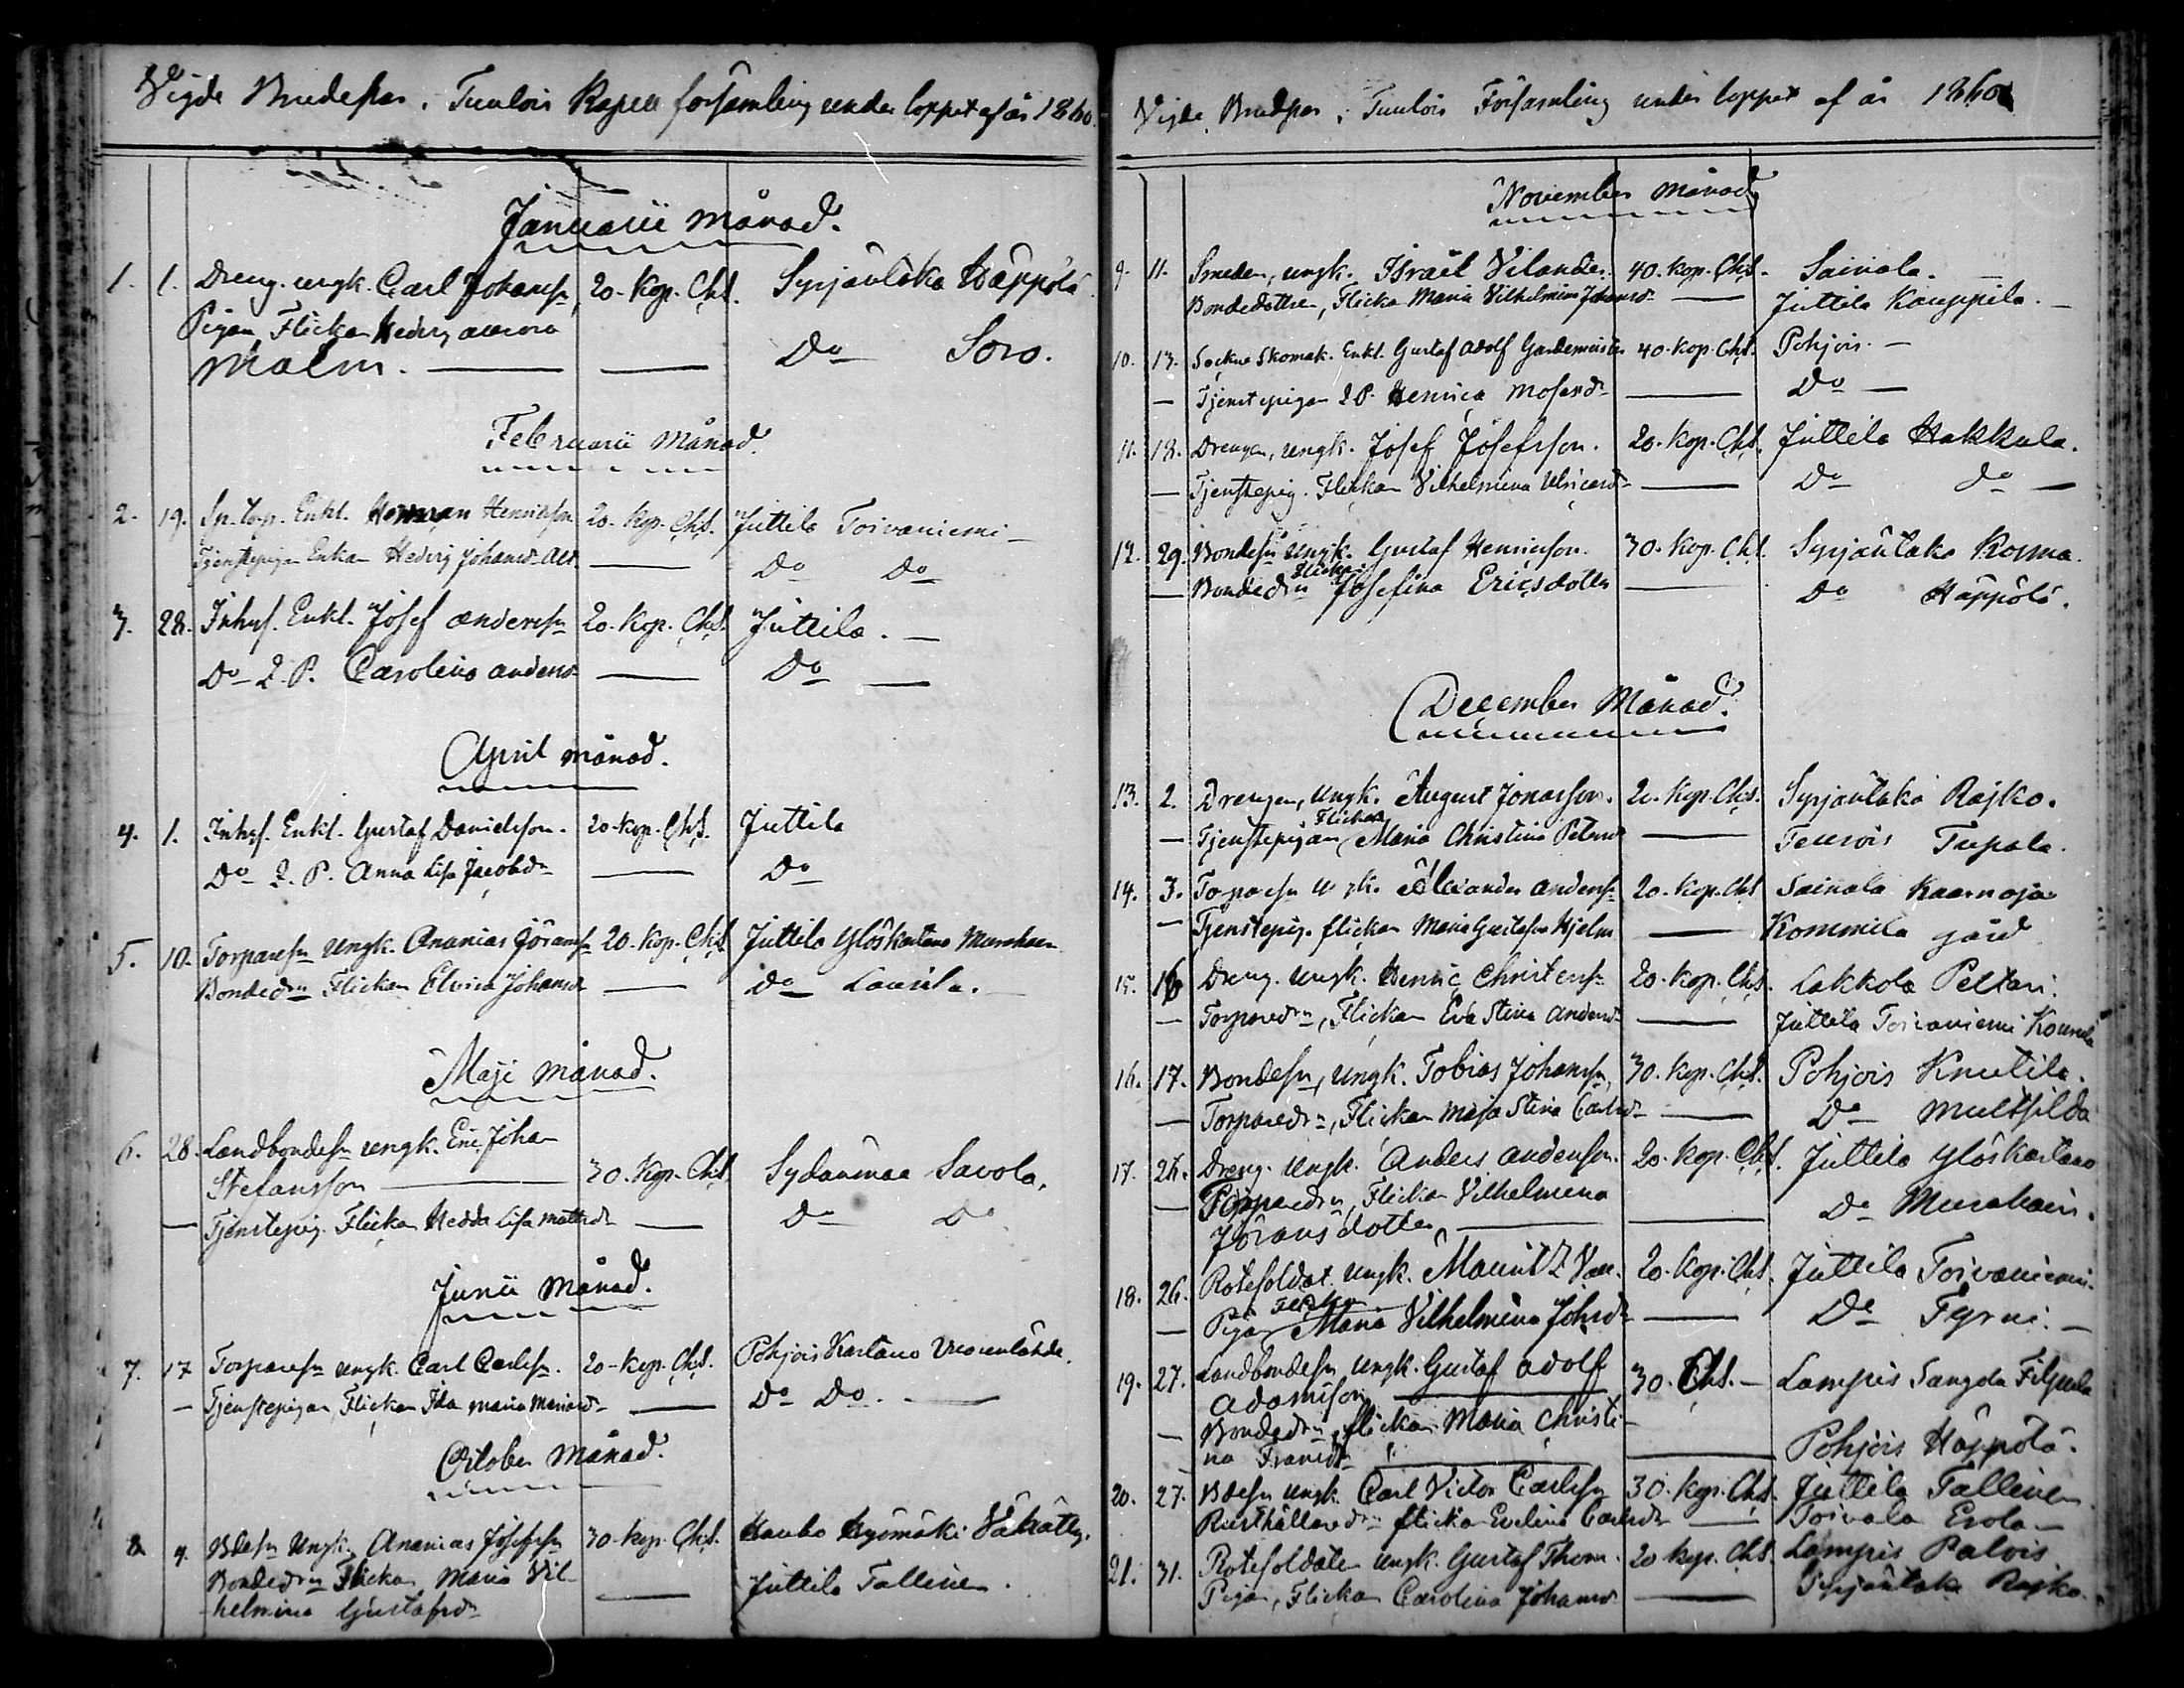 Vigde Brudepar i Tuulois Kapell församling under loppet af år 1860.
Januarii månad.
1. 1. Dreng. ungk. Carl Johansn 20. Kop. Ch.S. Syrjäntaka Häppölä
Pigan, Flickan Hedvig Aurora
Malm. — — Do Soro.
Februarii Månad.
2. 19. Sp. torp. Enkl. Herman Henriksson 20. Kop. Ch.S. Juttila Toivaniemi —
Tjenstepigan Enkan Hedvig Johansd. — Do Do
3. 28. Inhys. Enkl. Josef Andersn 20. Kop. Ch.S. Juttila. —
Do Q. P. Carolina Andersd. — Do —
April månad.
4. 1. Inhys. Enkl. Gustaf Danielsson. 20. Kop. Ch.S. Juttila
Do Q. P. Anna Lisa Jacobdr — Do
5. 10. Torparesn ungk. Ananias Göransn 20. Kop. Ch.S. Juttila Ylöskartano
Bondedrn Flickan Elvira Johansd. — Do Laurila. —
Maji månad.
6. 28. Landbondesn ungk. Eric Johan
Stefansson — 30. Kop. Ch.S. Sydänmaa Savola.
— Tjenstepig. Flickan Hedda Lisa Mattsdr — Do Do
Junii månad.
7. 17 Torparesn ungk. Carl Carlsn. 20. Kop. Ch.S. Pohjois Kartano Vuorenlähde.
— Tjenstepigan, Flickan Ida Maria — Do Do. —
October månad.
8 9. Bdesn Ungk. Ananias Josefsn 30. Kop. Ch.S. Hauho Hyömäki
Bondedrn Flickan Maria Vil-
-helmina Gustafsdr — Juttila Tallinen.
Vigde Brudpar i Tuulois Församling under loppet af år 1860
November månad
9. 11. Smeden, ungk. Israël Vilander. 40. Kop. Ch.S. Sainala. —
Bondedottren, Flickan Maria Vilhelmina Johansd. — Juttila Kauppila. —
10. 13. Sockne Skomak. Enkl. Gustaf Adolf Gardemeister 40. Kop. Ch.S. Pohjois. —
— Tjenstepigan Q. P. Henrica — Do —
11. 18. Drengen, ungk. Josef Josefsson. 20. Kop. Ch.S. Juttila Hakkula.
— Tjenstepig. Flickan Vilhelmina Ulricasdr — Do do —
12. 29. Bondesn ungk. Gustaf Henricsson. 30. Kop. Ch.S. Syrjäntaka Kosma.
— Bondedrn Flickan Josefina Ericsdotter — Do Häppölä.
December Månad.
13. 2. Drengen, Ungk. August Jonasson. 20. Kop. Ch.S. Syrjäntaka Rajko.
— Tjenstepigan Flickan Maria Christina Petersd. — Teurois Tupala.
14. 3. Torparesn ungk. Alexander Andersn 20. Kop. Ch.S Sainala Kaarnoja
— Tjenstepig. flickan Maria Gustafva Hjelm — Kommila gård
15. 16 Dreng. ungk. Henric Christersn 20. Kop. Ch.S. Lakkola Peltari.
— Torparedrn, Flickan Eva Stina Andersd. — Juttila Toivaniemi
16. 17. Bondesn, ungk. Tobias Johansn, 30. Kop. Ch.S. Pohjois Knutila.
— Torparedrn, Flickan Maja Stina Carlsdr — Do Multsilda
17. 26. Dreng. ungk. Anders Andersson. 20. Kop. Ch.S. Juttila Ylöskartano
— Torparedrn, Flickan Vilhelmina
Göransdotter, — — Do
18. 26. Rotesoldat. ungk. Mauritz 20. Kop. Ch.S. Juttila Toivaniemi.
— Pigan Flickan Maria Vilhelmina Johsdr — Do Tyrni. —
19. 27. Landbondesn ungk. Gustaf Adolf 30. Ch.S. — Lampis
Adamsson —
— Bondedrn, flickan Maria Christi-
na Fransdr — — Pohjois Häppölä.
20. 27. Bdesn ungk. Carl Victor Carlsn 30. Kop. Ch.S. Juttila Tallinen.
Rusthållaredrn flickan Evelina Carlsdr — Toivala Erola —
21. 31. Rotesoldaten ungk. Gustaf Thom. 20 Kop. Ch.S. Lampis Palois
Pigan, Flickan Carolina Johansd. — Syrjäntaka Rajko.